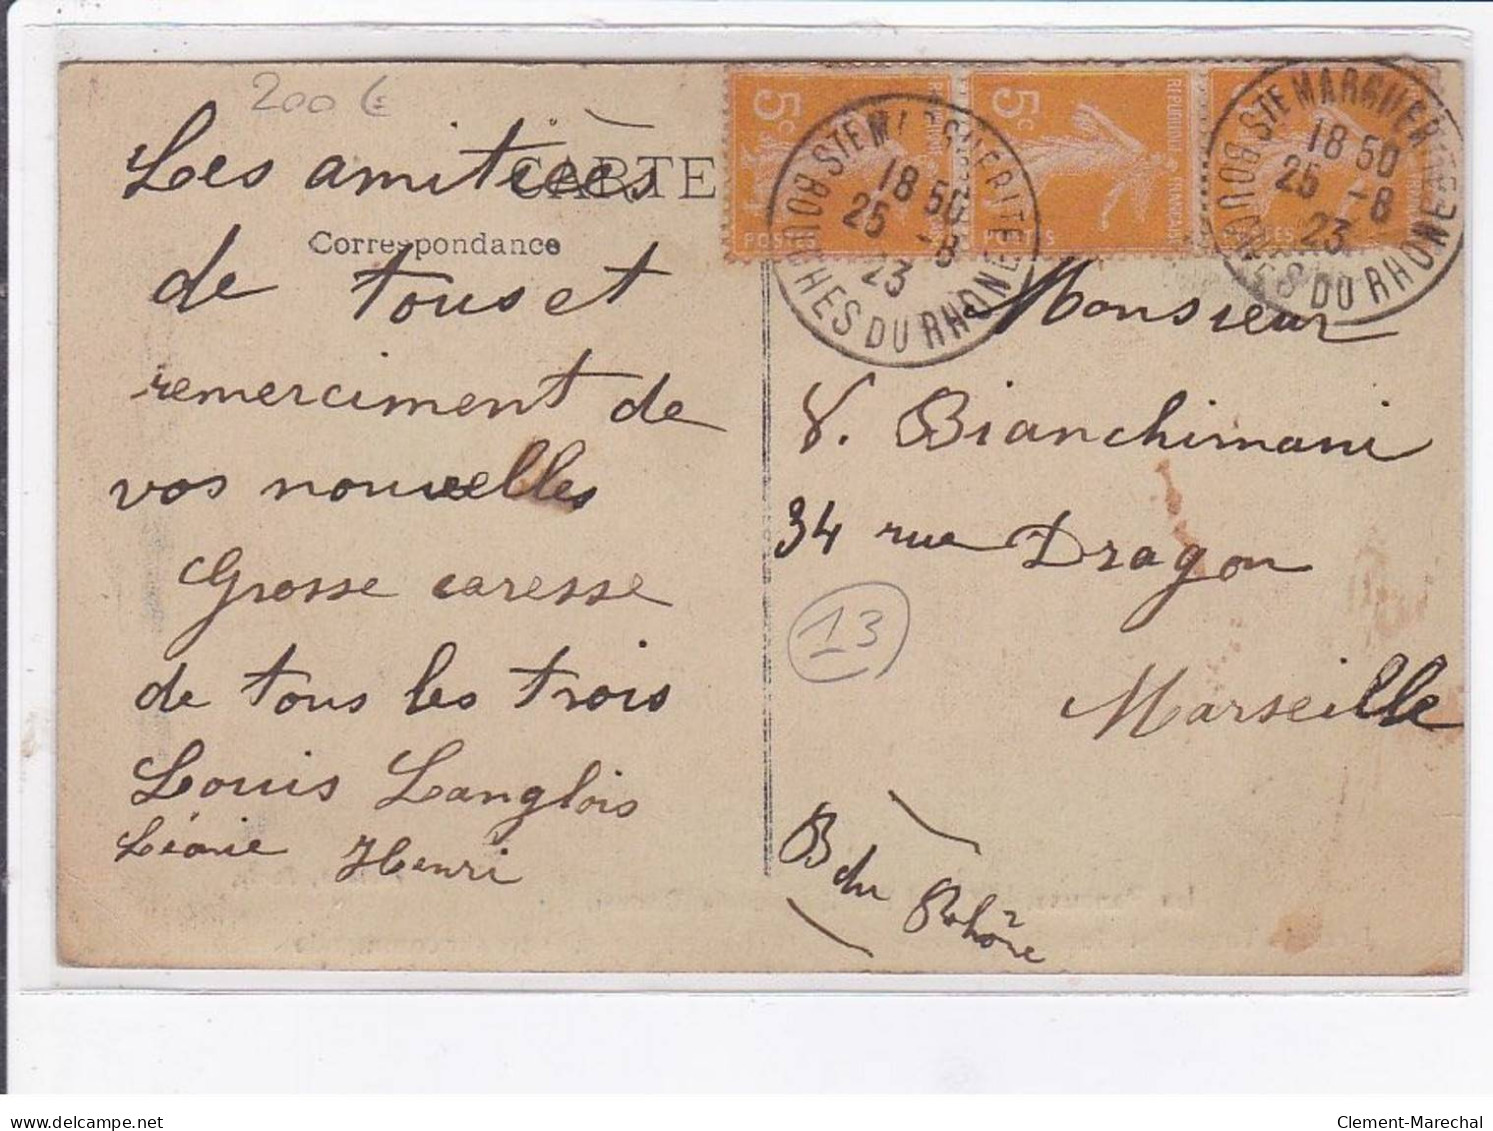 200 €
CARTE
Correspondance
Les amitiés
de tous et
remerciment de
vos nouvelles
Grosse caresse
de tous les trois
Louis Langlois
Léonie Henri
5c
POSTES
5c
REPUBLIQUE FRANÇAISE
POSTES
STE MARGUERITE
18 50
25 -8
23
BOUCHES DU RHONE
STE MARGUERITE
18 50
25 -8
23
BOUCHES DU RHONE
Monsieur
V. Bianchimani
34 rue Dragon
13
Marseille
B du Rhône
delcampe.net
Clement-Marechal